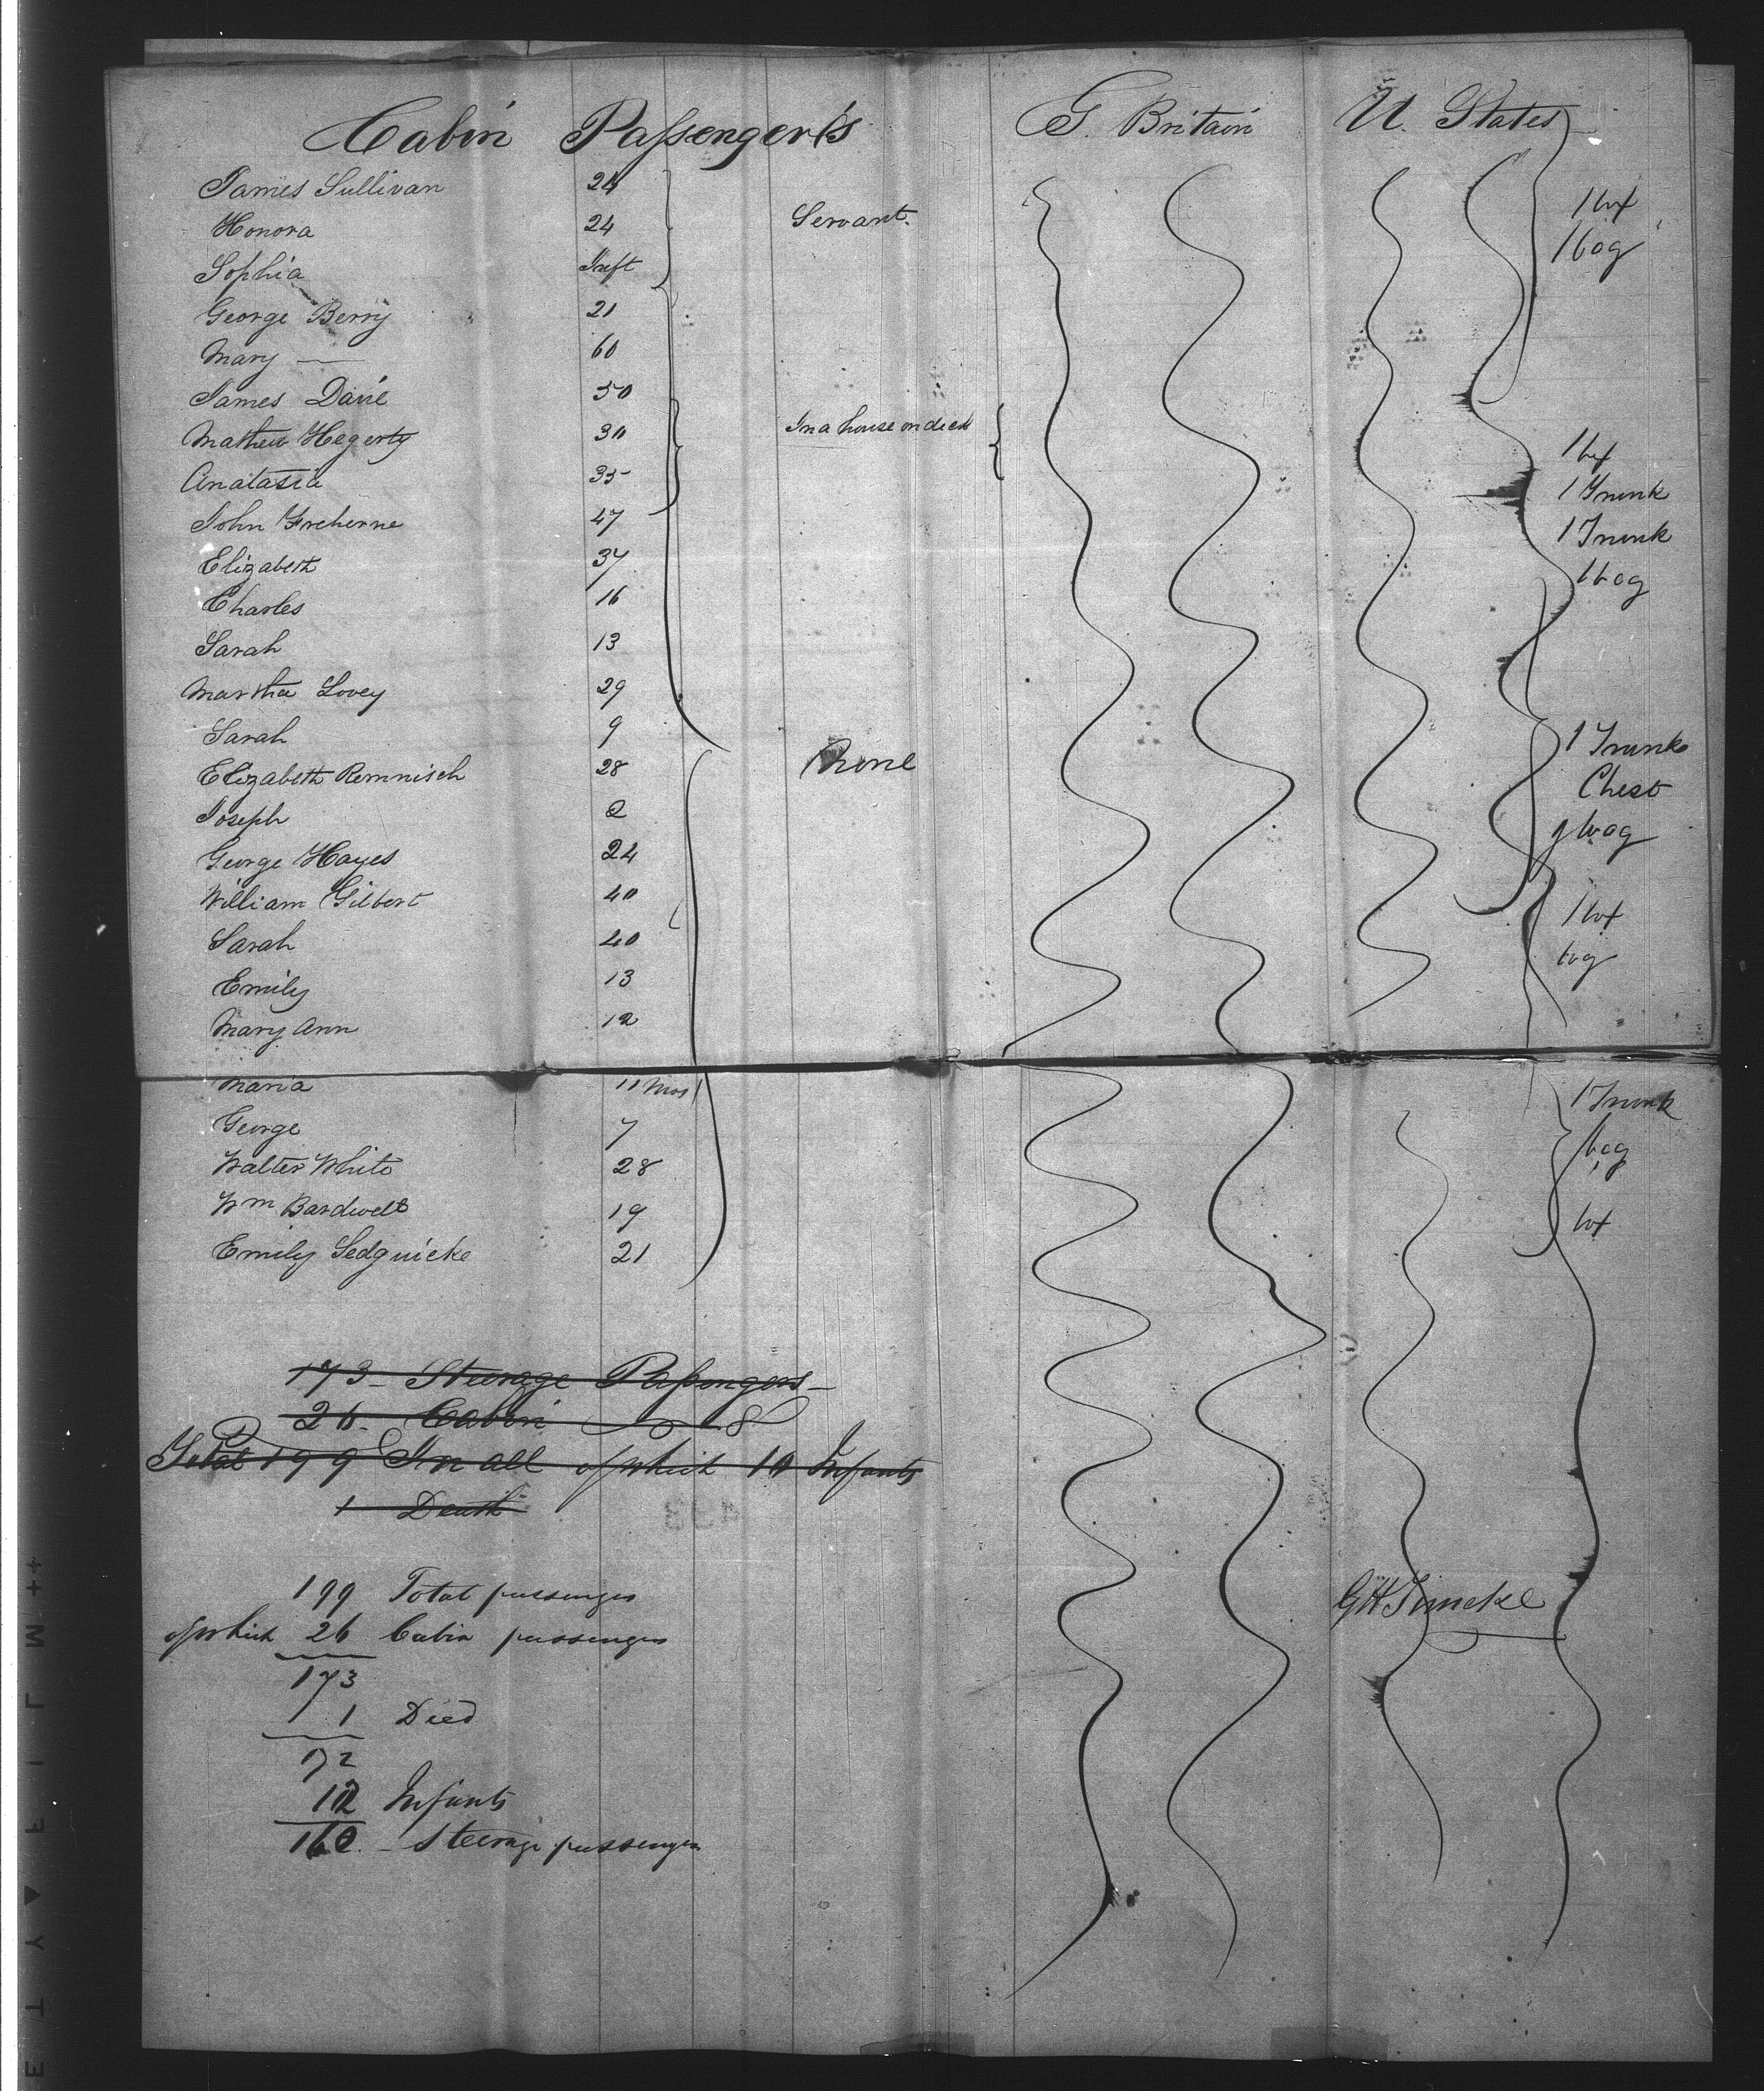 Cabin Passenger's G. Britain U. States
James Sullivan 24 1 box
Honora 24 Servant. 1 bag
Sophia Inft
George Berry 21
Mary — 60
James Davie 50
Mathew Hegerty 30 In a house on deck 1 box
Anatasia 35 1 Trunk
John Treherne 47 1 Trunk
Elizabeth 37 1 bag
Charles 16
Sarah 13
Martha Lovey 29
Sarah 9 1 Trunk
Elizabeth Remnisch 28 None Chest
Joseph 2 1 bag
George Hayes 24
William Gilbert 40 1 box
Sarah 40 bag
Emily 13
Mary Ann 12
Maria 11 Mos 1 Trunk
George 7 bag
Walter White 28
Wm Bardwell 19 box
Emily Sedguicke 21
173 - Steerage Passengers -
26 - Cabin
Total 199 In all of which 10 Infants
1 Death
199 Total passenges
of which 26 Cabin passenges
173
1 Died
172
12 Infants
160 - Steerage passenges